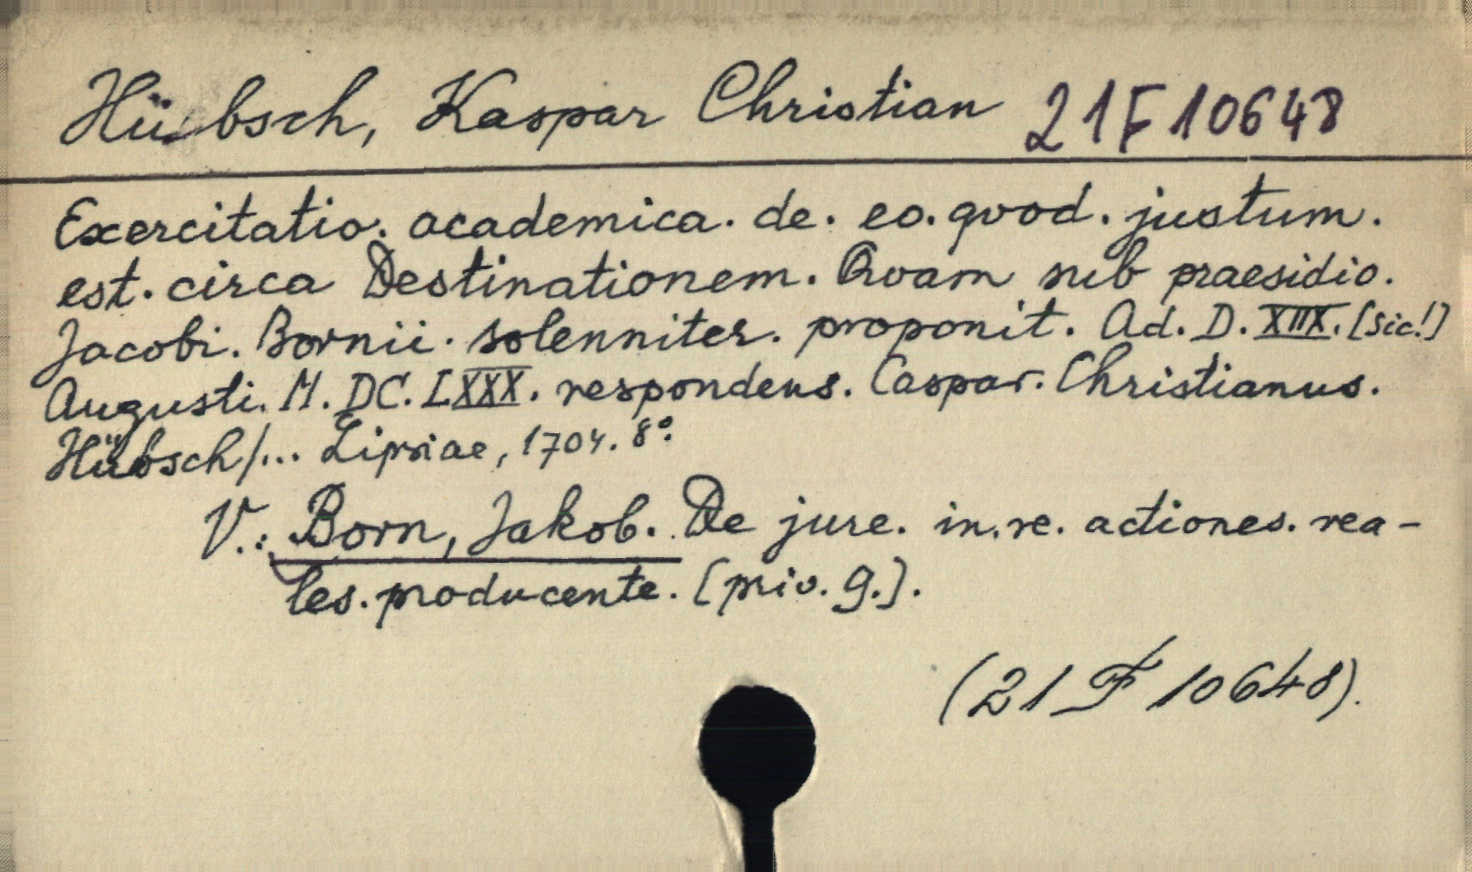 Hübsch, Kaspar Christian 21F10648
Exercitatio. academica. de. eo. qvod. justum.
est. circa Destinationem. Qvam sub praesidio.
Jacobi. Bornii. solenniter. proponit. Ad. D. XIIX. [sic!]
Augusti. M. DC. LXXX. respondens. Caspar. Christianus.
Hübsch/... Lipsiae, 1704. 8°.
V.: Born, Jakob. De jure. in. re. actiones. rea-
les. producente. [priv. 9.].
(21 F 10648).